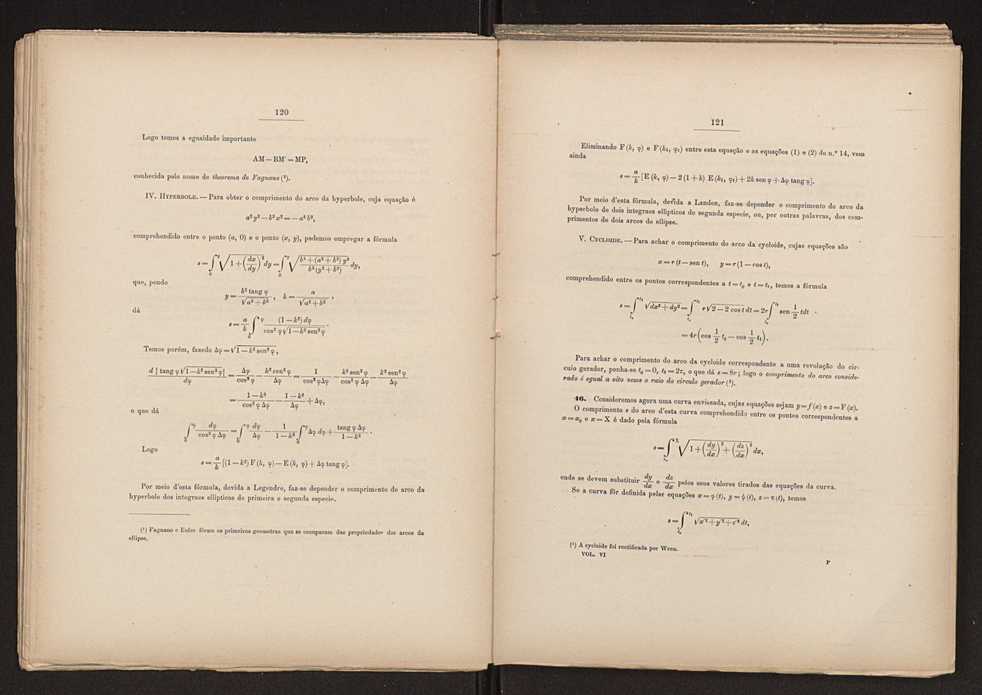 120
Logo temos a egualdade importante
AM — BM' = MP,
conhecida pelo nome de theorema de Fagnano (¹).
IV. HYPERBOLE. — Para obter o comprimento do arco da hyperbole, cuja equação é
a² y² — b² x² = — a² b²,
comprehendido entre o ponto (a, 0) e o ponto (x, y), podemos empregar a fórmula
s = ∫₀^y √(1 + (dx/dy)²) dy = ∫₀^y √((b⁴ + (a² + b²) y²)/(b²(y² + b²))) dy,
que, pondo
y = b² tang φ / √(a² + b²), k = a / √(a² + b²),
dá
s = a/k ∫₀^φ (1 — k²) dφ / (cos² φ √(1 — k² sen² φ)).
Temos porém, fazendo Δφ = √(1 — k² sen² φ),
d [tang φ √(1 — k² sen² φ)] / dφ = Δφ/cos² φ — k² sen² φ/Δφ = 1/(cos² φ Δφ) — k² sen² φ/(cos² φ Δφ) — k² sen² φ/Δφ
= (1 — k²)/(cos² φ Δφ) — (1 — k²)/Δφ + Δφ,
o que dá
∫₀^φ dφ/(cos² φ Δφ) = ∫₀^φ dφ/Δφ — 1/(1 — k²) ∫₀^φ Δφ dφ + tang φ Δφ/(1 — k²).
Logo
s = a/k [(1 — k²) F (k, φ) — E (k, φ) + Δφ tang φ].
Por meio d'esta fórmula, devida a Legendre, faz-se depender o comprimento do arco da
hyperbole dos integraes ellipticos de primeira e segunda especie.
(¹) Fagnano e Euler fôram os primeiros geometras que se occuparam das propriedades dos arcos da
ellipse.
121
Eliminando F (k, φ) e F (k₁, φ₁) entre esta equação e as equações (1) e (2) do n.º 14, vem
ainda
s = a/k [E (k, φ) — 2 (1 + k) E (k₁, φ₁) + 2k sen φ + Δφ tang φ].
Por meio d'esta fórmula, devida a Landen, faz-se depender o comprimento do arco da
hyperbole de dois integraes ellipticos de segunda especie, ou, por outras palavras, dos com-
primentos de dois arcos de ellipse.
V. CYCLOIDE. — Para achar o comprimento do arco da cycloide, cujas equações são
x = r (t — sen t), y = r (1 — cos t),
comprehendido entre os pontos correspondentes a t = t₀ e t = t₁, temos a fórmula
s = ∫_{t₀}^{t₁} √(dx² + dy²) = ∫_{t₀}^{t₁} r √(2 — 2 cos t) dt = 2r ∫_{t₀}^{t₁} sen 1/2 tdt
= 4r (cos 1/2 t₀ — cos 1/2 t₁).
Para achar o comprimento do arco da cycloide correspondente a uma revolução do cir-
culo gerador, ponha-se t₀ = 0, t₁ = 2π, o que dá s = 8r; logo o comprimento do arco conside-
rado é egual a oito vezes o raio do circulo gerador (¹).
46. Consideremos agora uma curva enviesada, cujas equações sejam y = f (x) e z = F (x).
O comprimento s do arco d'esta curva comprehendido entre os pontos correspondentes a
x = x₀ e x = X é dado pela fórmula
s = ∫_{x₀}^X √(1 + (dy/dx)² + (dz/dx)²) dx,
onde se devem substituir dy/dx e dz/dx pelos seus valores tirados das equações da curva.
Se a curva fôr definida pelas equações x = φ (t), y = ψ (t), z = π (t), temos
s = ∫_{t₀}^{t₁} √(x'² + y'² + z'²) dt,
(¹) A cycloide foi rectificada por Wren.
VOL. VI
P